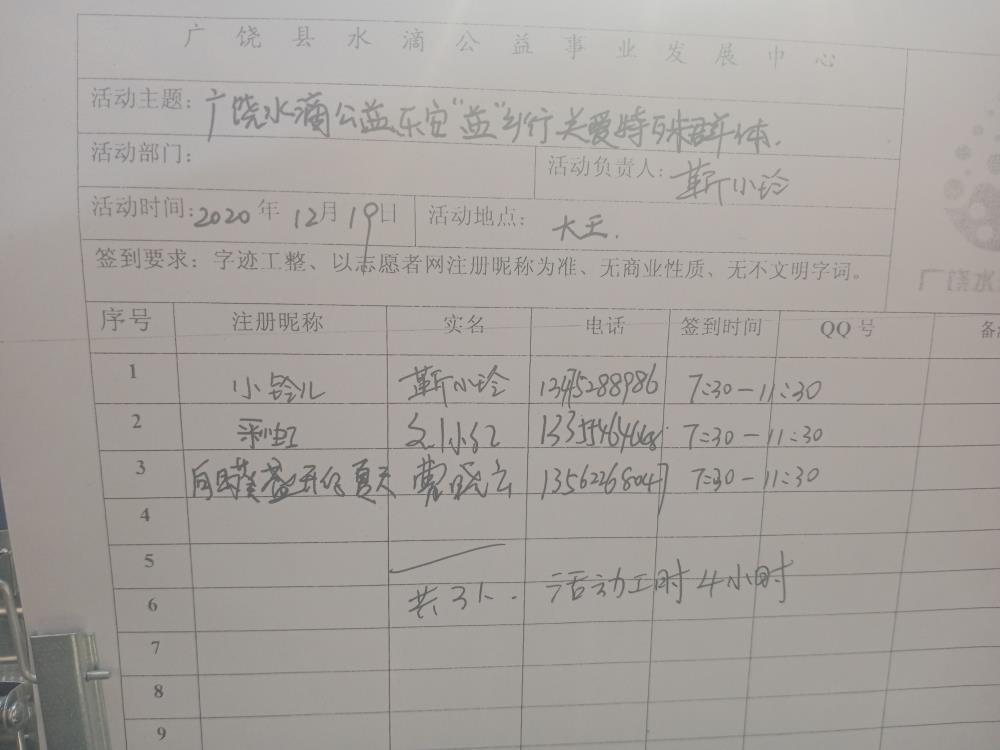 广饶县水滴公益事业发展中心
活动主题：广饶水滴公益乐安“益”乡行关爱特殊群体.
活动部门： 活动负责人：靳小玲
活动时间：2020年12月19日 活动地点：大王.
签到要求：字迹工整、以志愿者网注册昵称为准、无商业性质、无不文明字词。
广饶水
序号 注册昵称 实名 电话 签到时间 QQ号 备
1 小铃儿 靳小玲 13475288986 7:30-11:30
2 彩虹 刘小红 7:30-11:30
3 向日葵盛开的夏天 费晓云 13562268047 7:30-11:30
4
5
6 共3人. 活动工时4小时
7
8
9